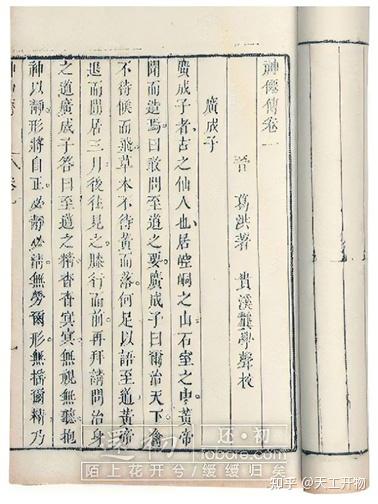 神僊傳卷一
晉 葛洪著 貴溪龔學聲校
廣成子
廣成子者古之仙人也居崆峒之山石室之中黃帝
聞而造焉曰敢問至道之要廣成子曰爾治天下禽
不待候而飛草木不待黃而落何足以語至道黃帝
退而閒居三月後往見之膝行而前再拜請問治身
之道廣成子答曰至道之精杳杳冥冥無視無聽抱
神以靜形將自正必靜必清無勞爾形無搖爾精乃
还·初
陌上花开兮/缓缓归矣
知乎 @天工开物